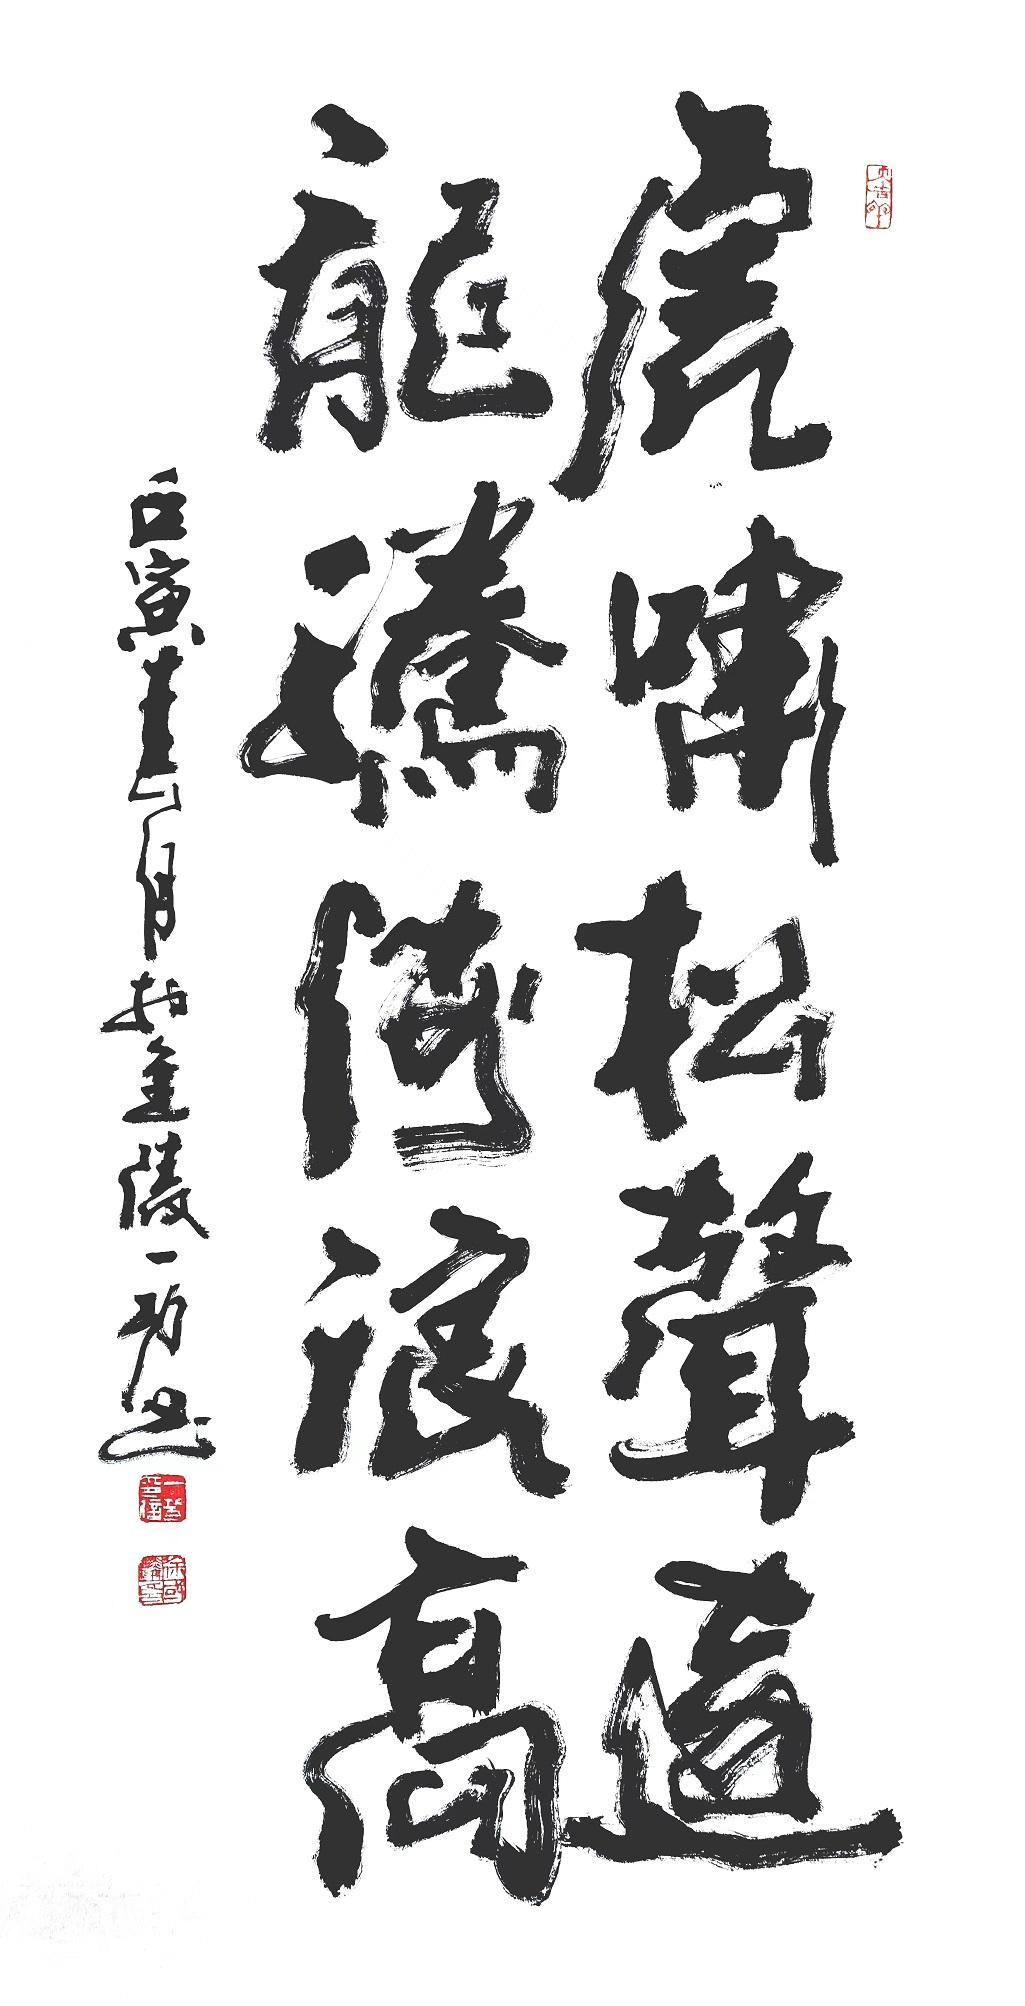 虎嘯松聲遠
龍騰海浪高
壬寅春月於金陵一功書